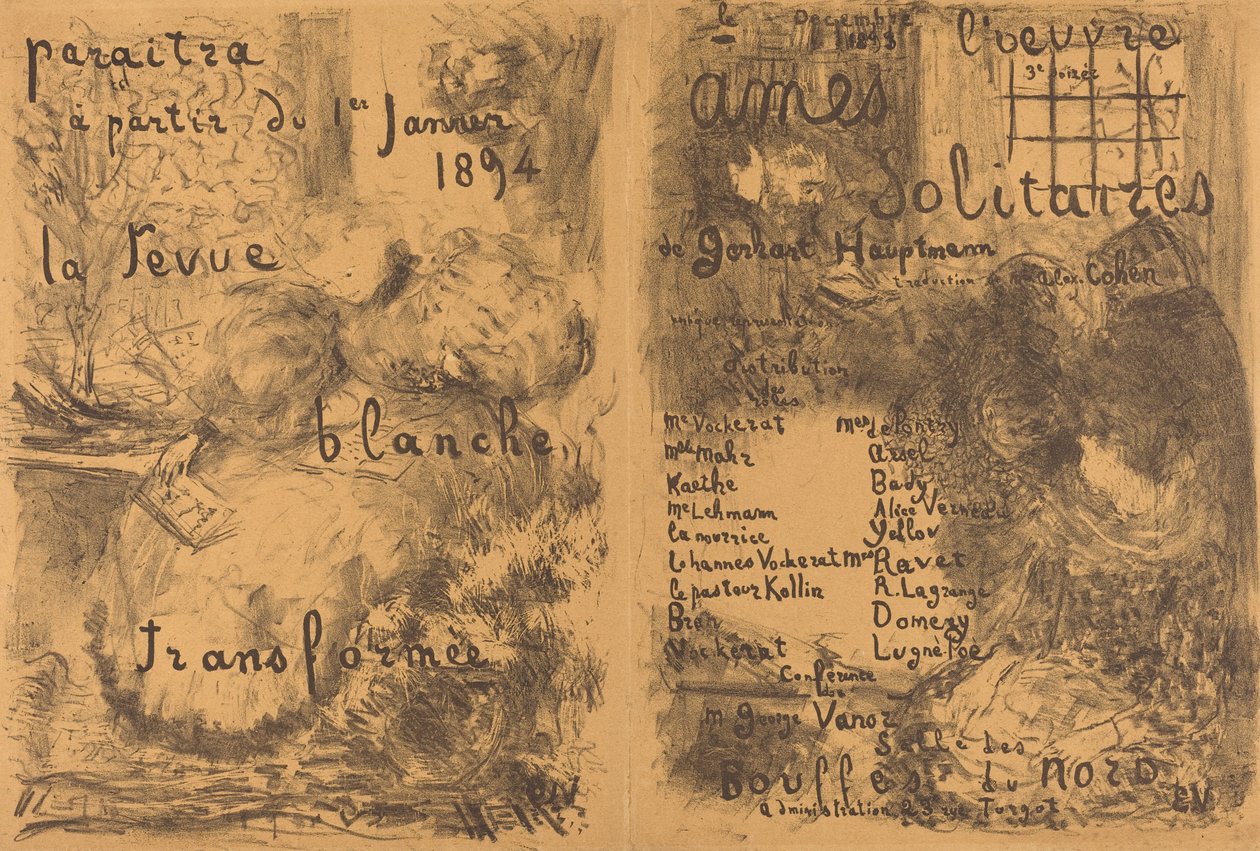 paraitra
à partir du 1er Janvier
1894
la revue
blanche
transformée
EV
le Decembre
1893
l'oeuvre
3e soirée
âmes
Solitaires
de Gerhart Hauptmann
traduction de Mr Alex. Cohen
unique représentation
distribution
des
rôles
Me Vockerat
Mlle Mahr
Kaethe
Me Lehmann
la nourrice
Iohannes Vockerat
le pasteur Kollin
Bran
Vockerat
Mes
Arsel
Bady
Alice
Yellov
Mrs Ravet
R. Lagrange
Domeny
Lugné Poe
Conférence
de
M George Vanor
Salle des
Bouffes du nord
administration 23 rue Turgot
EV